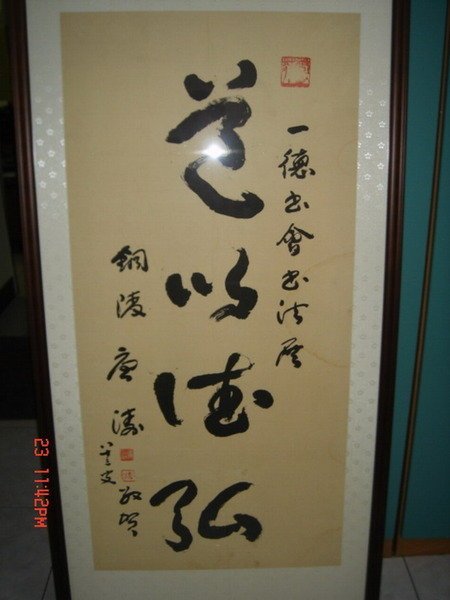 一德書會書法展
道以德弘
銅陵 唐濤
敬賀
23 11:42PM